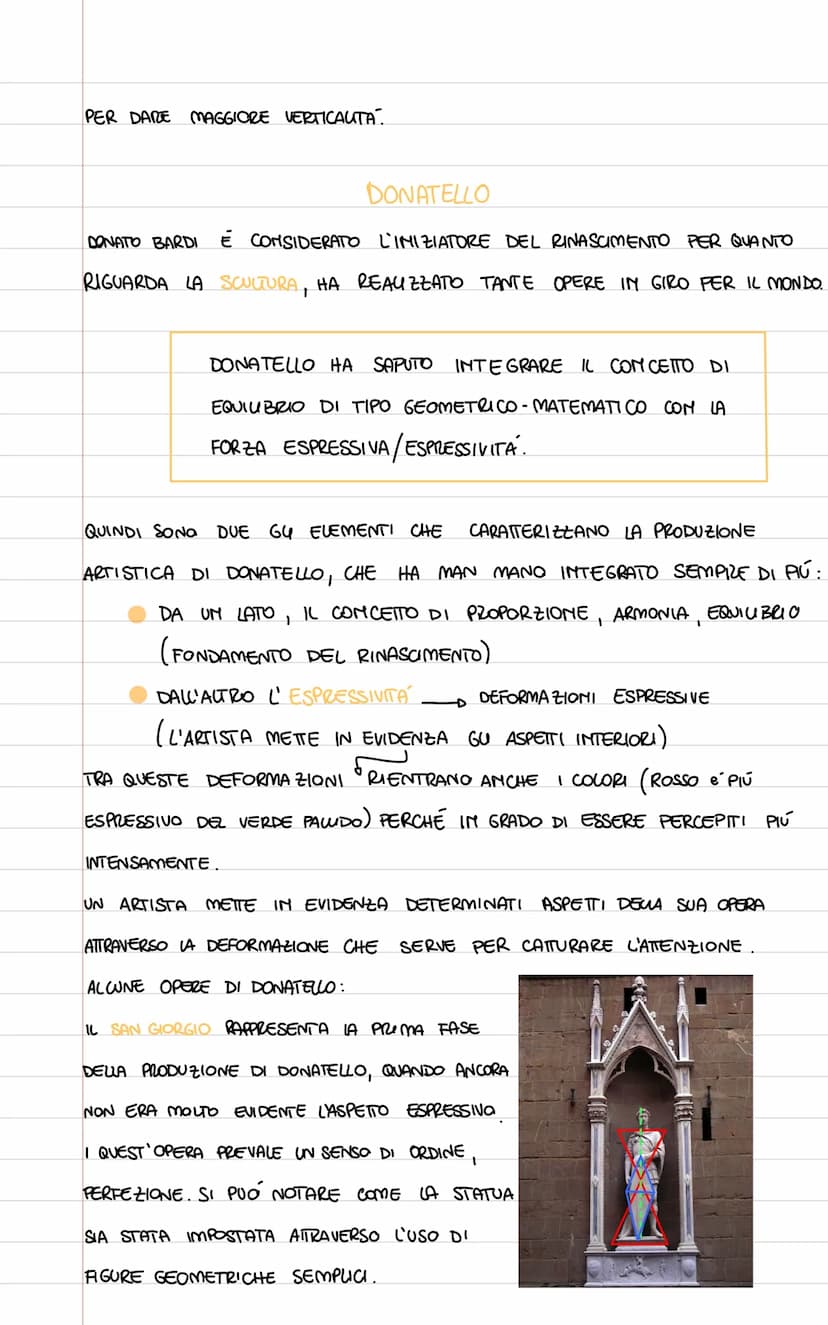 PER DARE MAGGIORE VERTICALITÀ.
DONATELLO
DONATO BARDI É CONSIDERATO L'INIZIATORE DEL RINASCIMENTO PER QUANTO
RIGUARDA LA SCULTURA, HA REALIZZATO TANTE OPERE IN GIRO PER IL MONDO.
DONATELLO HA SAPUTO INTEGRARE IL CONCETTO DI
EQUILIBRIO DI TIPO GEOMETRICO-MATEMATICO CON LA
FORZA ESPRESSIVA/ESPRESSIVITÁ.
QUINDI SONO DUE GLI ELEMENTI CHE CARATTERIZZANO LA PRODUZIONE
ARTISTICA DI DONATELLO, CHE HA MAN MANO INTEGRATO SEMPRE DI PIÚ:
DA UN LATO, IL CONCETTO DI PROPORZIONE, ARMONIA, EQUILIBRIO
(FONDAMENTO DEL RINASCIMENTO)
DALL'ALTRO L'ESPRESSIVITÁ → DEFORMAZIONI ESPRESSIVE
(L'ARTISTA METTE IN EVIDENZA GLI ASPETTI INTERIORI)
TRA QUESTE DEFORMAZIONI RIENTRANO ANCHE I COLORI (ROSSO é PIÚ
ESPRESSIVO DEL VERDE PALLIDO) PERCHÉ IN GRADO DI ESSERE PERCEPITI PIÚ
INTENSAMENTE.
UN ARTISTA METTE IN EVIDENZA DETERMINATI ASPETTI DELLA SUA OPERA
ATTRAVERSO LA DEFORMAZIONE CHE SERVE PER CATTURARE L'ATTENZIONE.
ALCUNE OPERE DI DONATELLO:
IL SAN GIORGIO RAPPRESENTA LA PRIMA FASE
DELLA PRODUZIONE DI DONATELLO, QUANDO ANCORA
NON ERA MOLTO EVIDENTE L'ASPETTO ESPRESSIVO.
I QUEST'OPERA PREVALE UN SENSO DI ORDINE,
PERFEZIONE. SI PUÓ NOTARE COME LA STATUA
SIA STATA IMPOSTATA ATTRAVERSO L'USO DI
FIGURE GEOMETRICHE SEMPLICI.